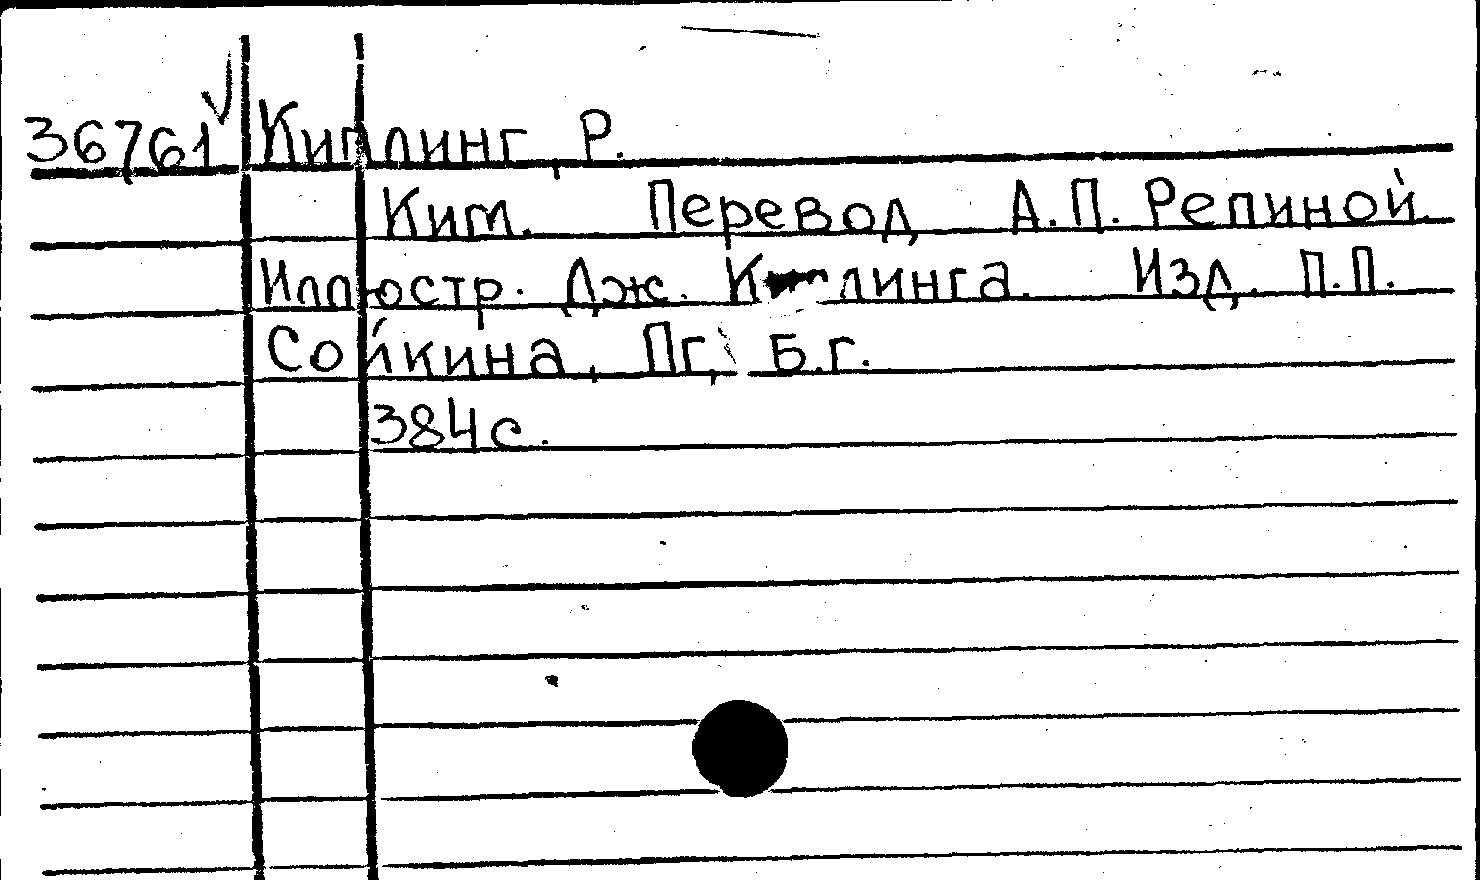 36761 Киплинг, Р.
Ким. Перевод А.П. Репиной.
Иллюстр. Дж. Киплинга. Изд. П.П.
Сойкина, Пг, Б.г.
384с.